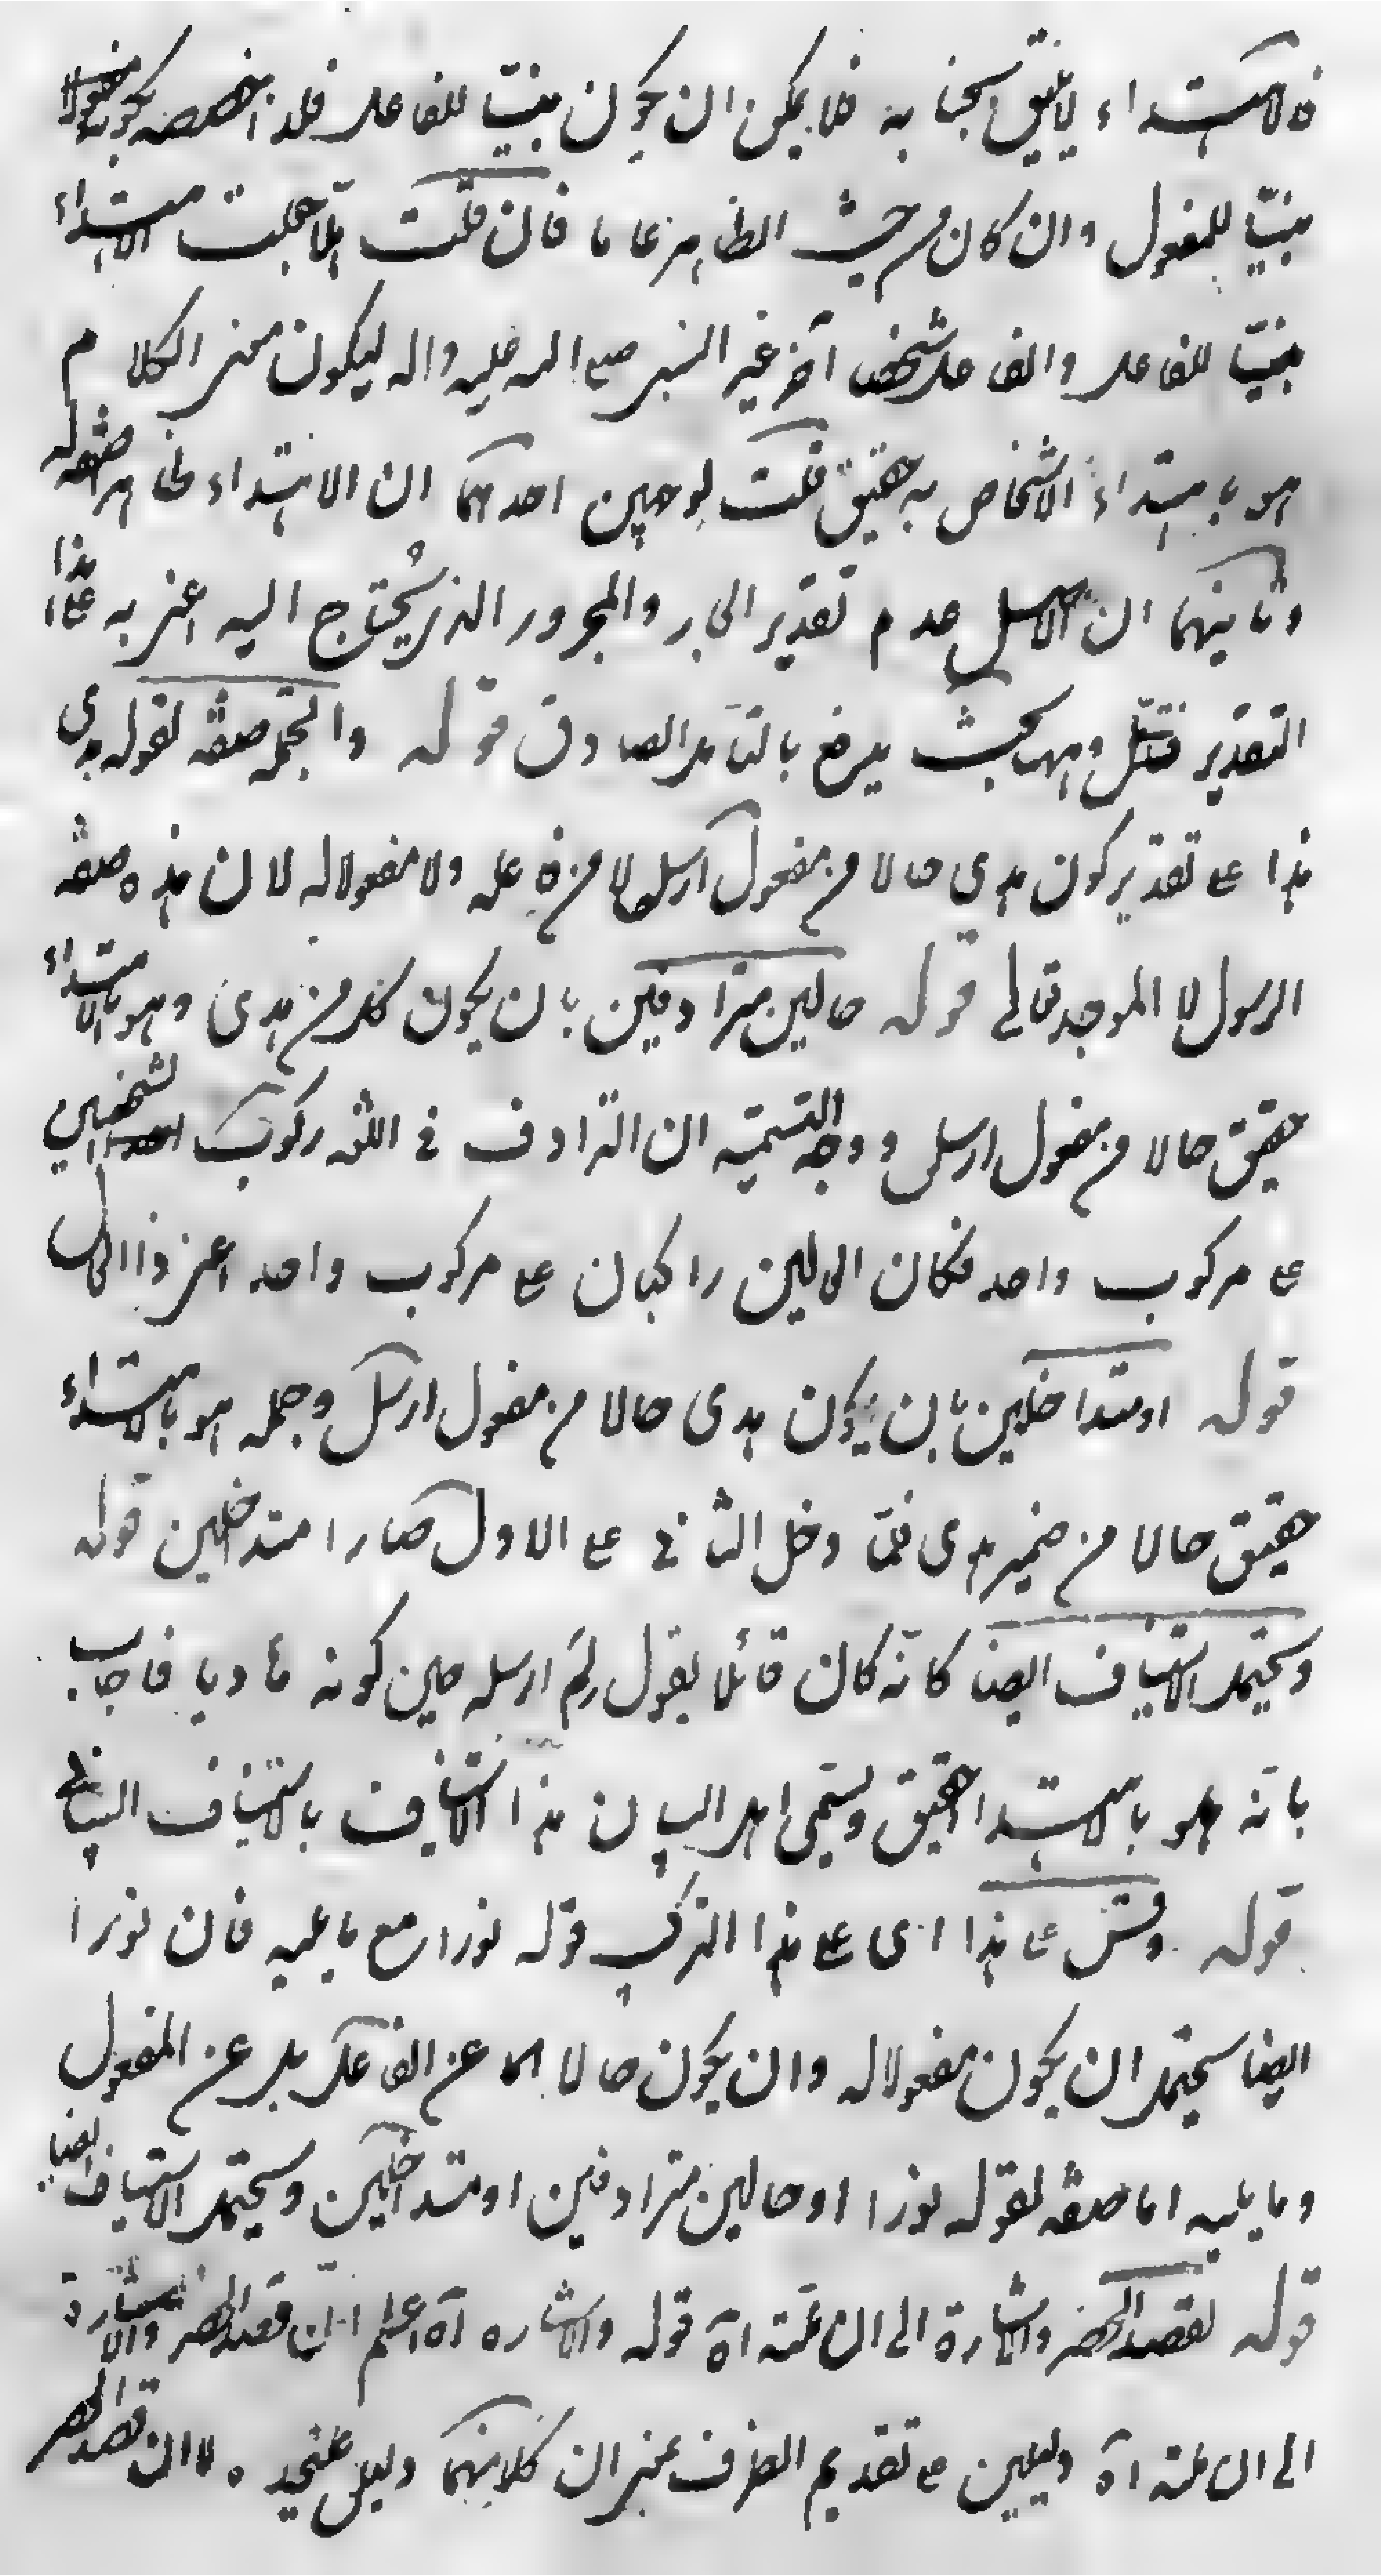 فالاهتداء لا يليق بجنابه فلا يمكن ان يكون مبنيّا للفاعل فلذا خصصه بكونه مصدرا
مبنيّا للمفعول وان كان من حيث الظاهر عاما فان قلت لم لا جعلت الاهتداء
مبنيّا للفاعل والفاعل شخصا آخر غير النبي صلى الله عليه واله ليكون معنى الكلام
هو باهتداء الاشخاص به حقيق قلت لوجهين احدهما ان الاهتداء ظاهرا صفة له
وثانيهما ان الاصل عدم تقدير الجار والمجرور الذي يحتاج اليه اعني به على هذا
التقدير فتأمل وههنا بحث يعرف بالتأمل الصادق قوله والجملة صفة لقوله هدى
هذا على تقدير كون هدى حالا من مفعول ارسله لا من فاعله ولا مفعولا له لان هذه صفة
الرسول لا الموجد تعالى قوله حالين مترادفين بان يكون كل من هدى وهو بالاهتداء
حقيق حالا من مفعول ارسل ووجه التسمية ان الترادف في اللغة ركوب الشخصين
على مركوب واحد فكان الحالين راكبان على مركوب واحد اعني ذا الحال
قوله او متداخلين بان يكون هدى حالا من مفعول ارسل وجملة هو بالاهتداء
حقيق حالا من ضمير هدى فلمّا دخل الثاني على الاول صارا متداخلين قوله
ويحتمل الاستيناف ايضا كانّه كان قائلا يقول لم ارسله حين كونه هاديا فاجاب
بانّه هو بالاهتداء حقيق ويسمّى اهل البيان هذا الاستيناف بالاستيناف البياني
قوله وقس على هذا اى على هذا التركيب قوله نورا مع ما يليه فان نورا
ايضا يحتمل ان يكون مفعولا له وان يكون حالا اما عن الفاعل بل عن المفعول
وما يليه اما صفة لقوله نورا او حالين مترادفين او متداخلين ويحتمل الاستيناف ايضا
قوله لقصد الحصر والاشارة الى ان علته اه قوله والاشارة اه اعلم ان قصد الحصر والاشارة
الى ان علته اه دليلين على تقديم الظرف بمعنى ان كلا منهما دليل عليحده لا ان قصد الحصر